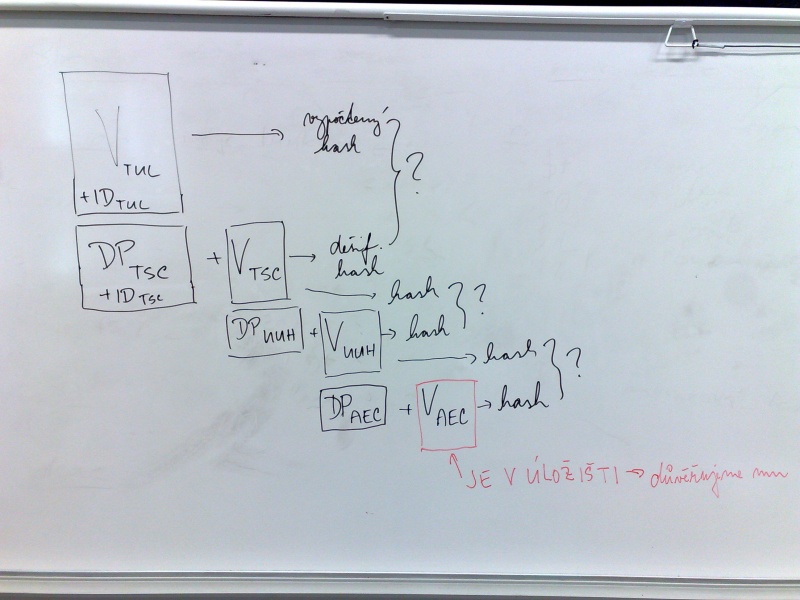 V TUL
+ID TUL
vypočtený
hash
?
DP TSC
+ID TSC
+ V TSC → dešif.
hash
→ hash
?
DP UUH + V UUH → hash
→ hash
?
DP AEC + V AEC → hash
JE V ÚLOŽIŠTI → důvěřujeme mu